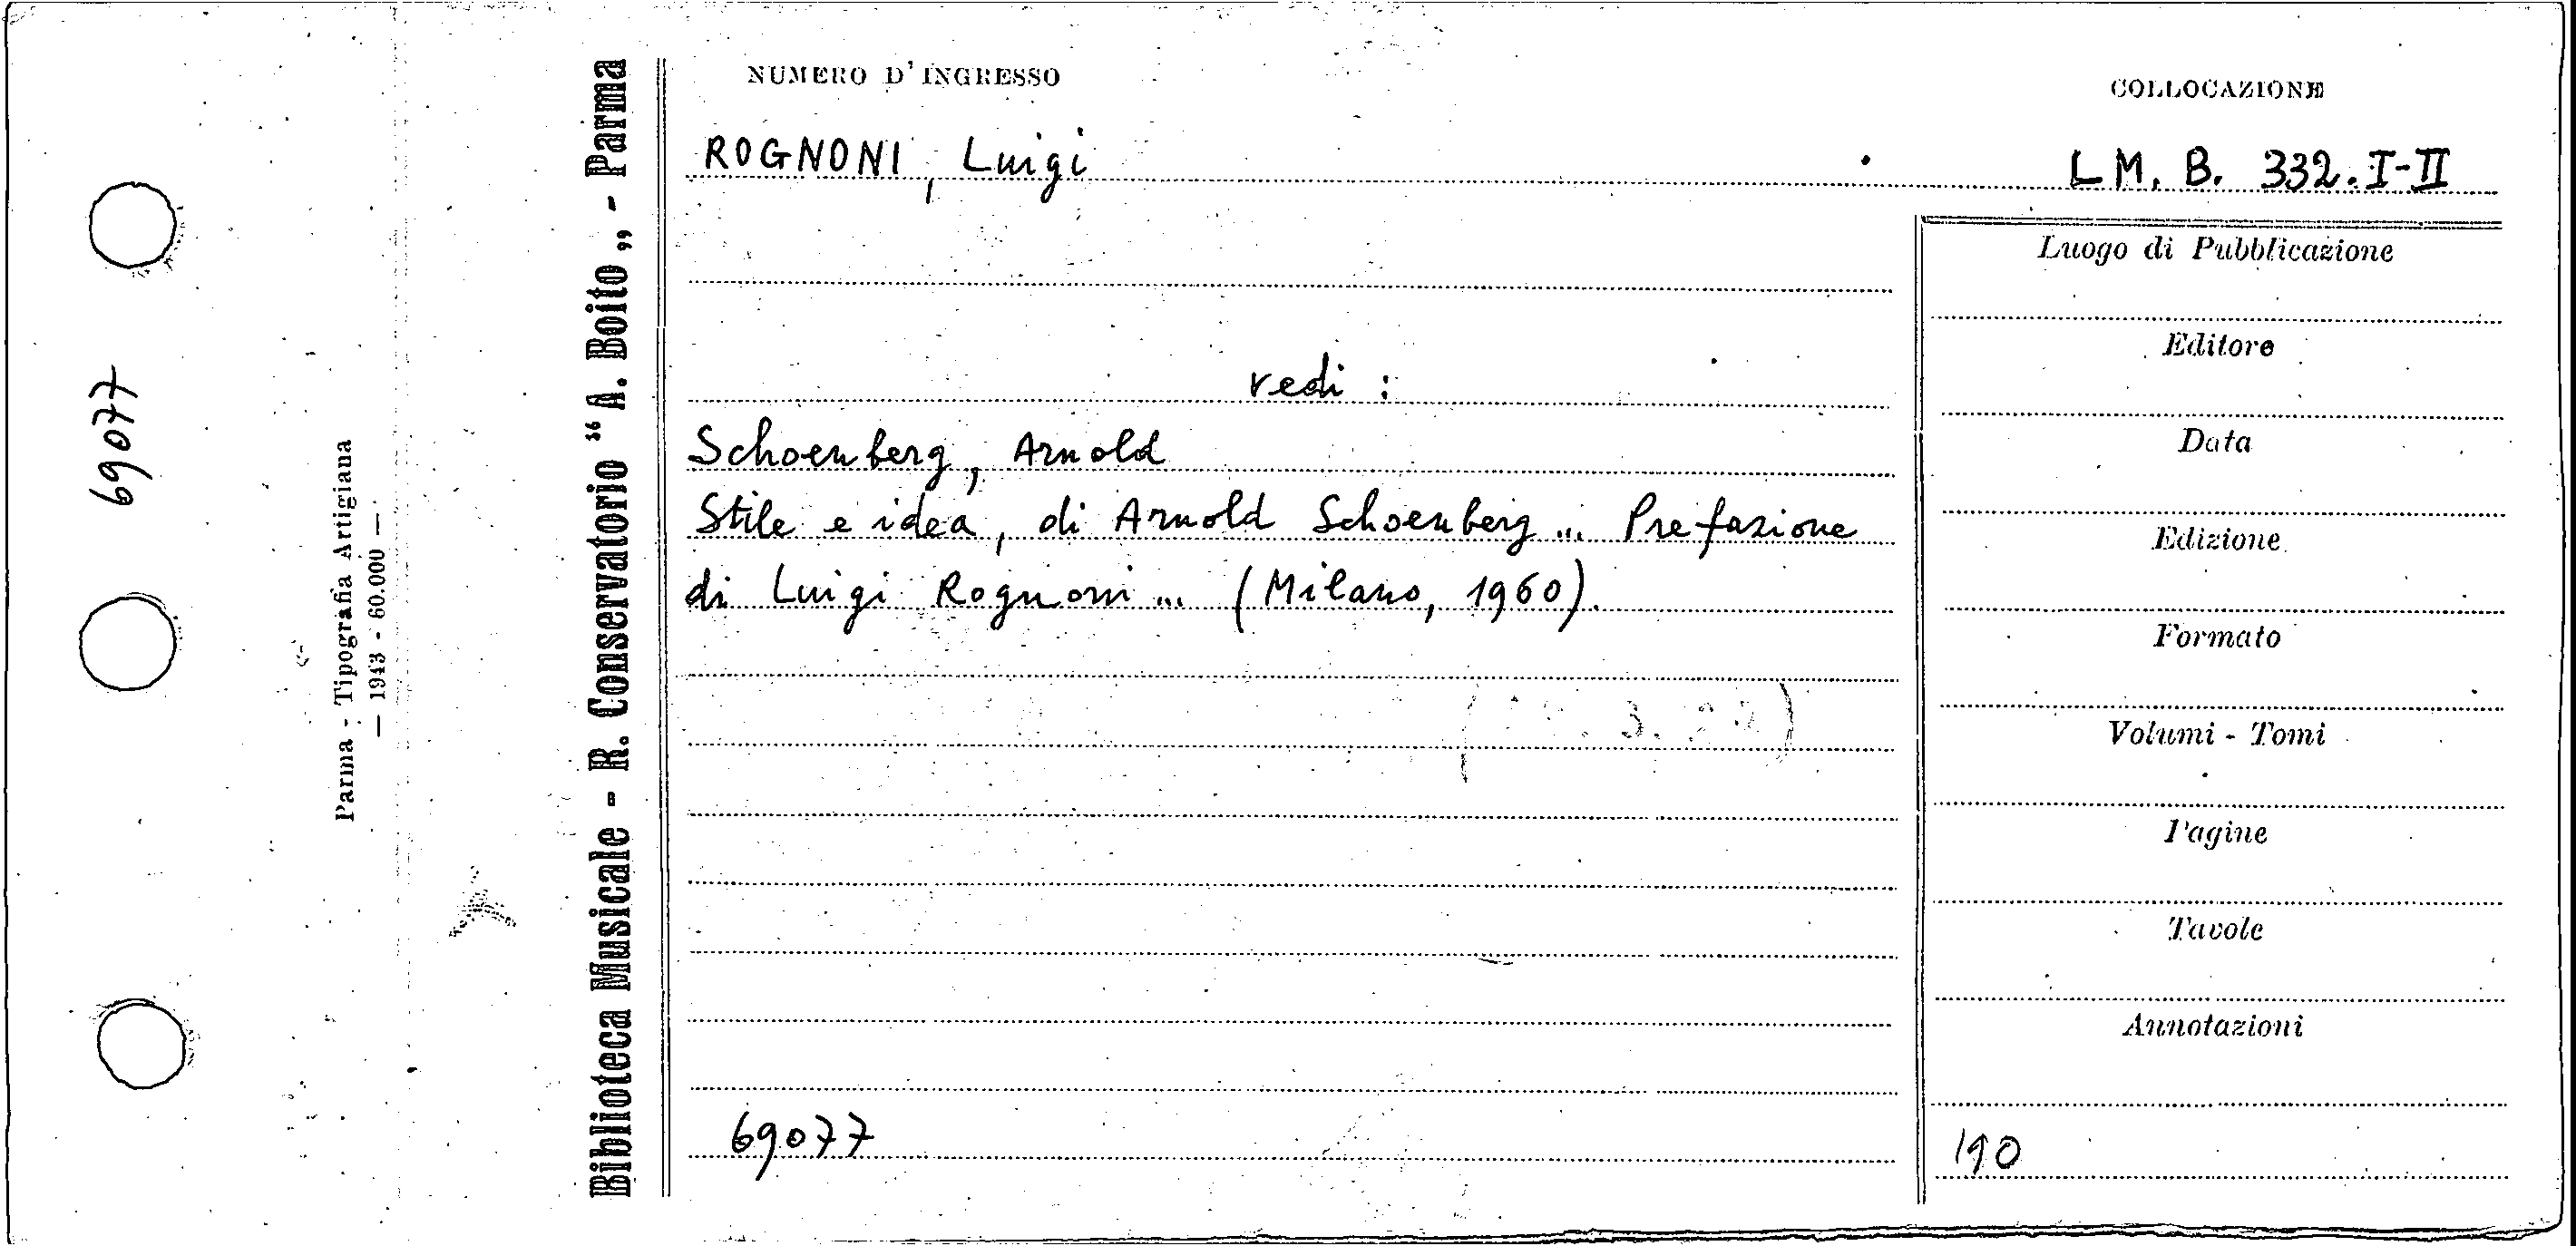 69077
Parma - Tipografia Artigiana
— 1943 - 60.000 —
Biblioteca Musicale - R. Conservatorio “A. Boito„ - Parma
NUMERO D'INGRESSO
COLLOCAZIONE
ROGNONI, Luigi
LM. B. 332. I-II
vedi :
Schoenberg, Arnold
Stile e idea, di Arnold Schoenberg... Prefazione
di Luigi Rognoni... (Milano, 1960).
69077
Luogo di Pubblicazione
Editore
Data
Edizione
Formato
Volumi - Tomi
Pagine
Tavole
Annotazioni